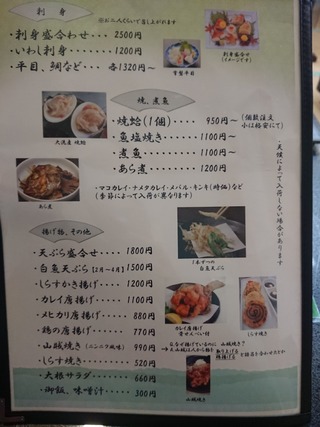 刺身
※お二人くらいで召し上がれます
・刺身盛合わせ・・・ 2500円
・いわし刺身・・・・ 1200円
・平目、鯛など・・・各1320円～
刺身盛合せ
(イメージです)
常磐平目
焼、煮魚
・焼蛤(1個)・・・ 950円～
・魚塩焼き・・・・ 1100円～
・煮魚・・・・・・ 1100円～
・あら煮・・・・・ 1200円
大洗産 焼蛤
あら煮
・マコカレイ・ナメタカレイ・メバル・キンキ(時価)など
(季節によって入荷が異なります)
・天候によって入荷しない場合があります
揚げ物、その他
・天ぷら盛合せ・・・ 1800円
・白魚天ぷら(2月～4月) 1500円
・しらすかき揚げ・・ 1200円
・カレイ唐揚げ・・・ 1100円
・メヒカリ唐揚げ・・ 880円
・鶏の唐揚げ・・・・ 770円
・山賊焼き(ニンニク風味) 990円
・しらす焼き・・・・ 520円
・大根サラダ・・・・ 660円
・御飯、味噌汁・・・ 300円
白魚天ぷら
カレイ唐揚げ
骨せんべい付
しらす焼き
山賊焼き